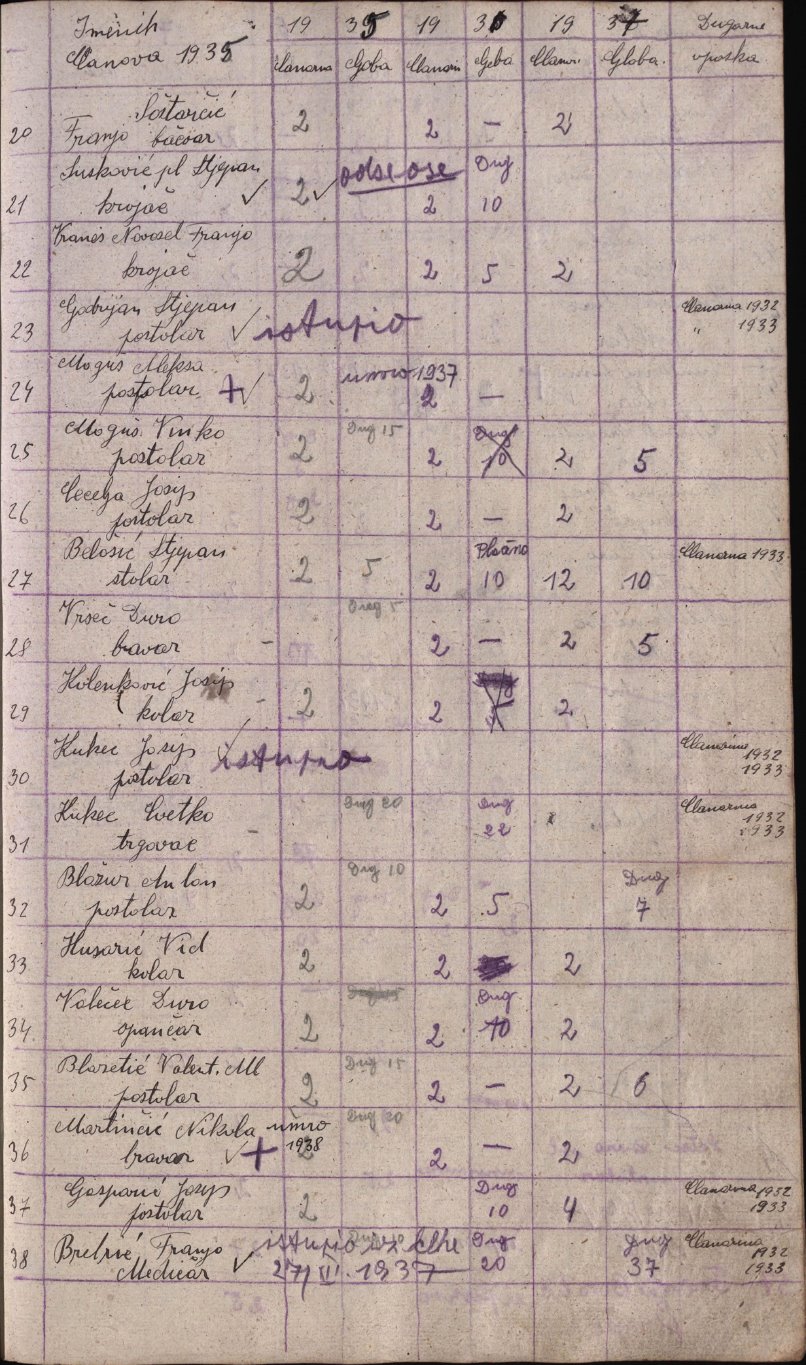 Imenik 19 35 19 36 19 37 Dugovne
Članova 1935 Članarina Globa Članarin Globa Članar. Globa. opaska
Šoštarčić
20 Franjo bačvar 2 2 — 2
Suskovič pl Stjepan odselose Dug
21 krojač 2 2 10
Novosel Franjo
22 krojač 2 2 5 2
Godrijan Stjepan Članarina 1932
23 postolar istupio " 1933
Moguš Aleksa umro 1937
24 postolar + 2 2 —
Moguš Vinko Dug 15 Dug
25 postolar 2 2 10 2 5
Josip
26 postolar 2 2 — 2
Belošić Stjepan Plaćeno Članarina 1933
27 stolar 2 5 2 10 12 10
Vrseč Đuro Dug 5
28 bravar – 2 — 2 5
Kolenković Josip
29 kolar – 2 2 2
Kukec Josip istupio Članarina 1932
30 postolar 1933
Kukec Cvetko Dug 20 Dug Članarina 1932
31 trgovac – 22 1933
Blažur Antun Dug 10 Dug
32 postolar 2 2 5 7
Husarić Vid
33 kolar 2 2 2
Valečec Đuro Dug
34 opančar 2 2 10 2
Blaretić Valent. Ml Dug 15
35 postolar 2 2 — 2 6
Martinčić Nikola umro Dug 20
36 bravar + 1938 2 2 — 2
Gasparić Josip Dug Članarina 1932
37 postolar 2 10 4 1933
Franjo istupio iz Dug Dug Članarina 1932
38 Medičar 27/VI 1937 20 37 1933